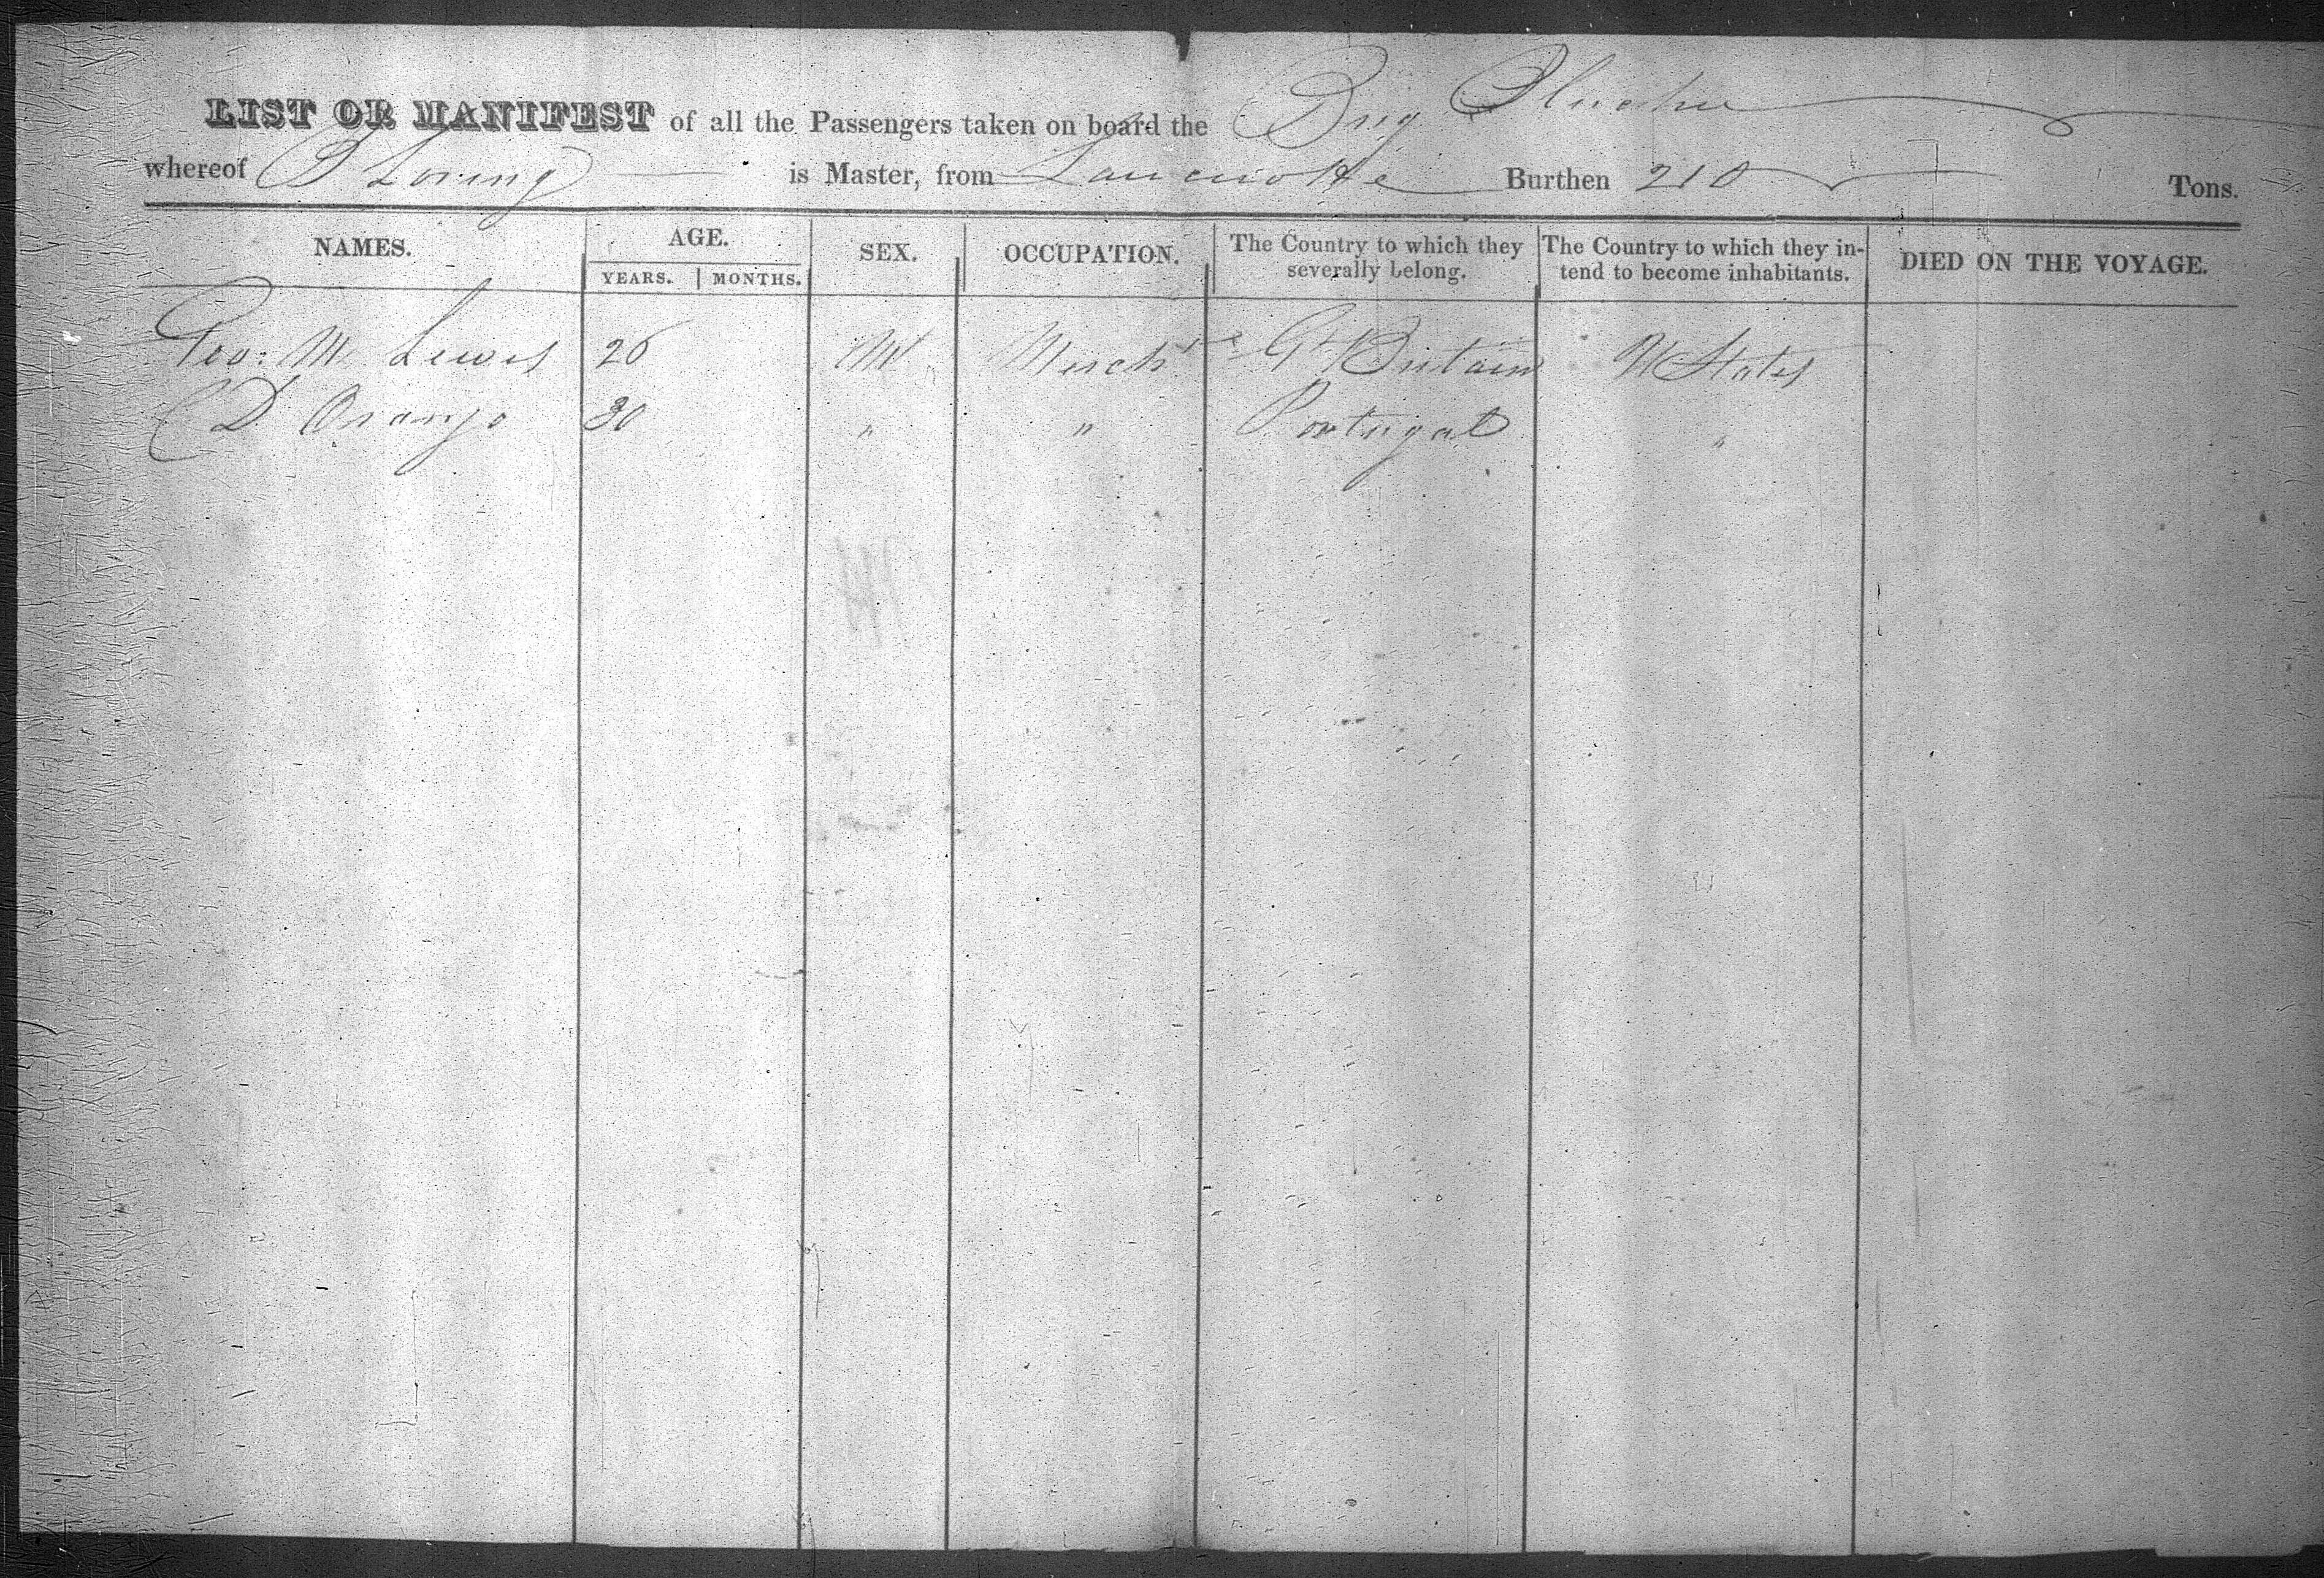 LIST OR MANIFEST of all the Passengers taken on board the Brig
whereof Loring is Master, from Burthen 210 Tons.
NAMES. AGE. YEARS. MONTHS. SEX. OCCUPATION. The Country to which they severally belong. The Country to which they intend to become inhabitants. DIED ON THE VOYAGE.
Geo: M Lewis 26 M Mercht Gt Britain U States
C D 30 " " Portugal "